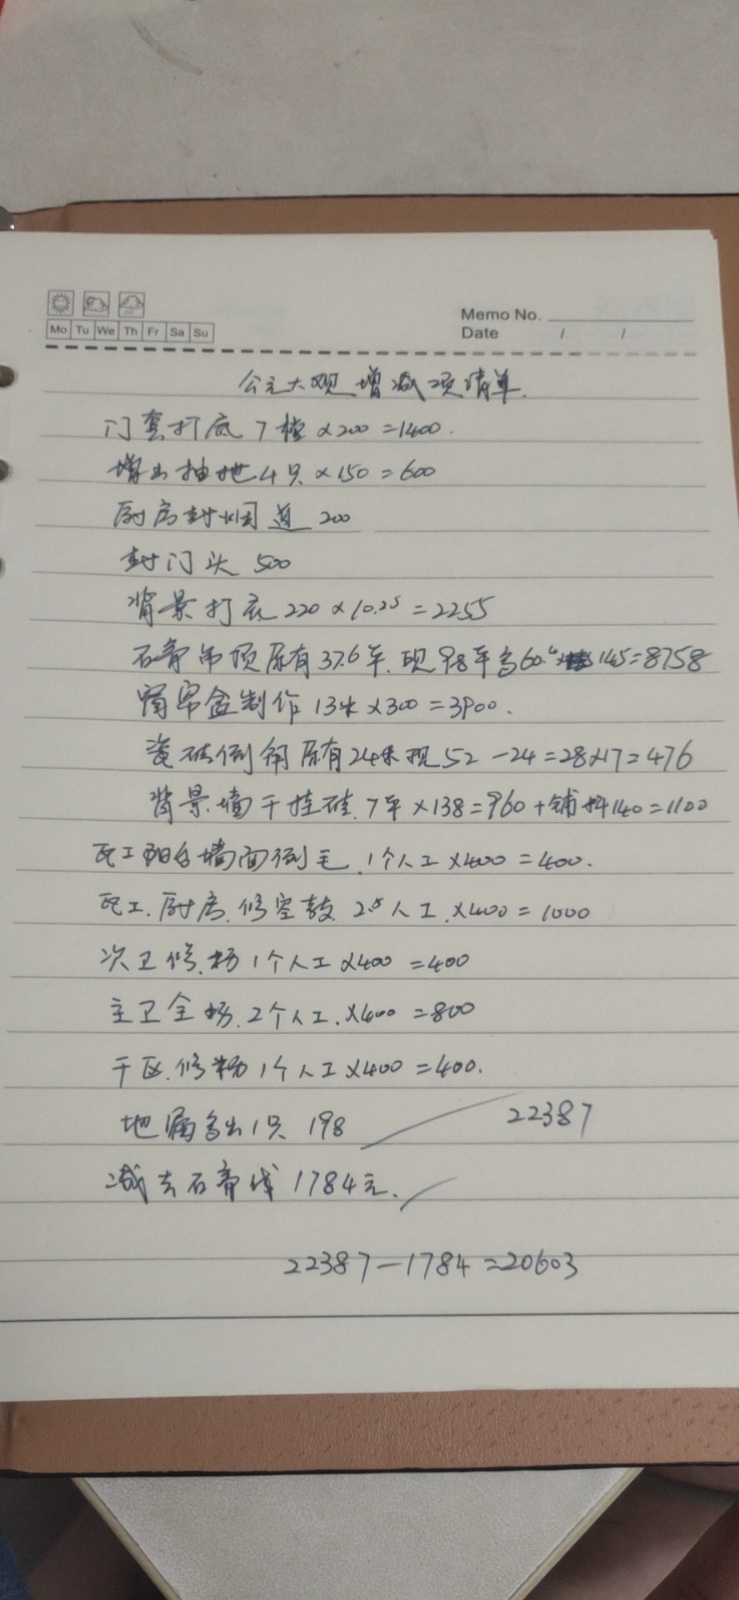 Mo Tu We Th Fr Sa Su
Memo No.
Date / /
公元大观增减项清单.
门套打底 7樘×200=1400.
增出抽地4只×150=600
厨房封烟道 200
封门头 500
背景打底 220×10.25=2255
石膏吊顶原有37.6平.现98平多60.4 145=8758
窗帘盒制作 13米×300=3900.
瓷砖倒角 原有24米现52-24=28×17=476
背景墙干挂 7平×138=960+辅料140=1100
瓦工阳台墙面 1个人工×400=400.
瓦工.厨房.修空鼓 2.5人工.×400=1000
次卫修.粉 1个人工×400=400
主卫全粉.2个人工.×400=800
干区.修粉 1个人工×400=400.
地漏多出1只 198
22387
减去石膏线 1784元.
22387-1784=20603